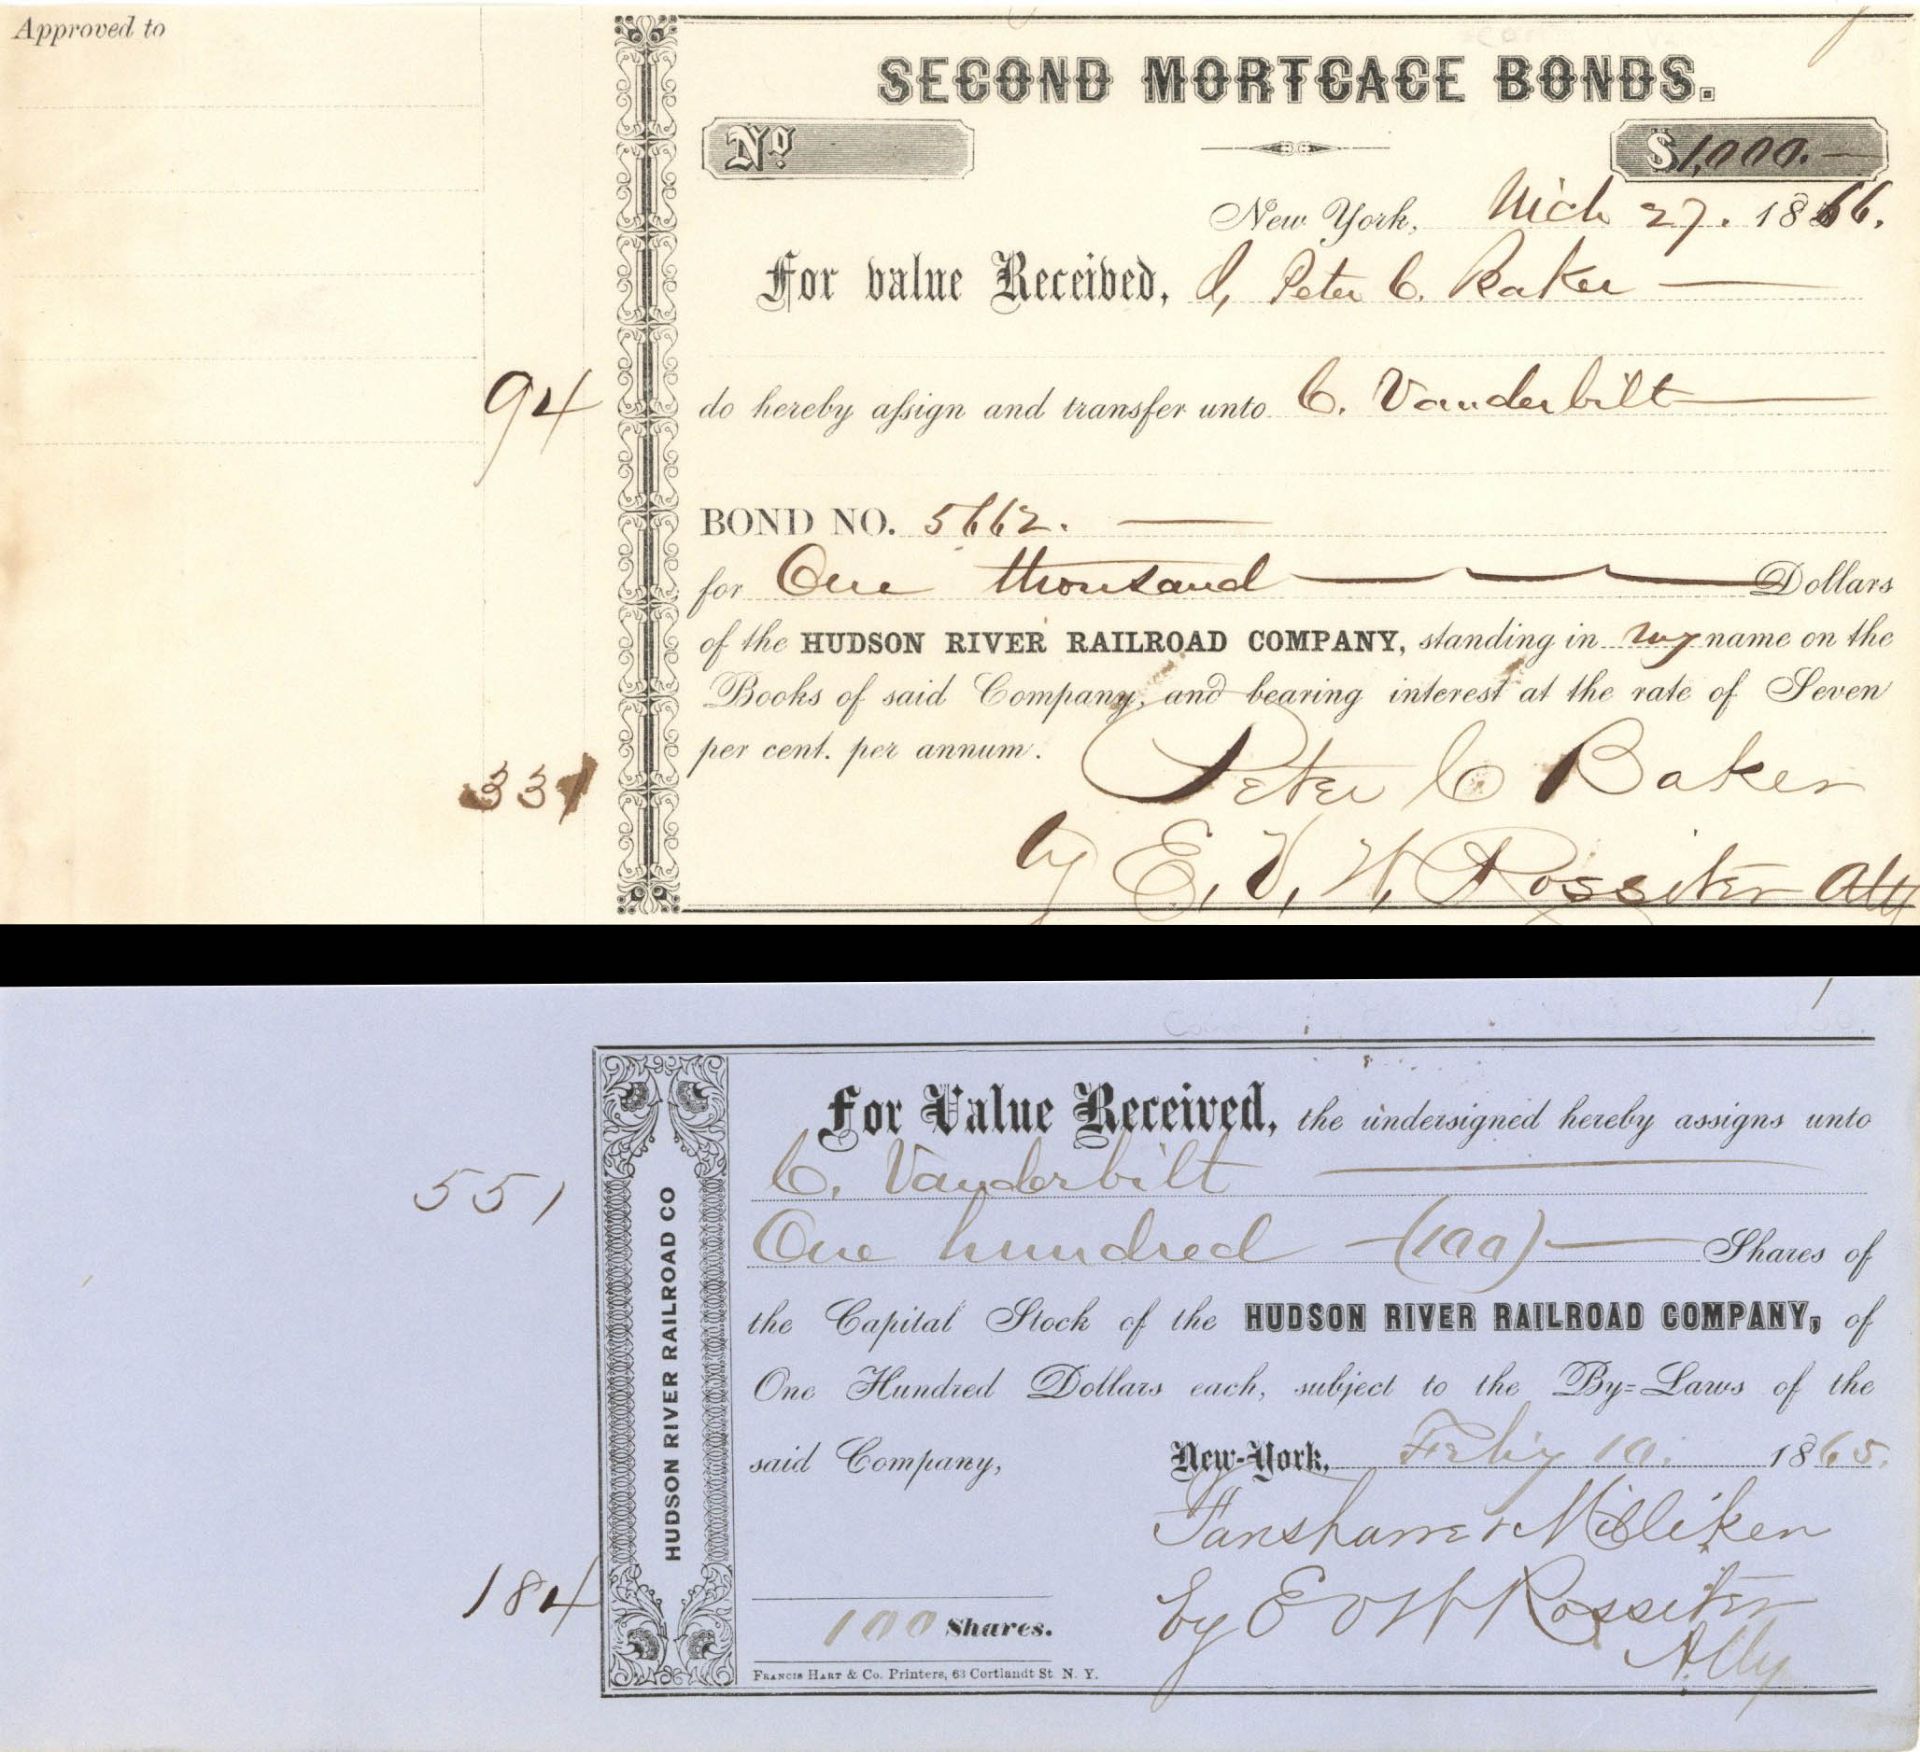 Approved to
SECOND MORTGAGE BONDS.
No. $1,000.—
New York, Mch 27. 1866.
For value Received, I, Peter C. Baker —
94
do hereby assign and transfer unto C. Vanderbilt —
BOND NO. 5662. —
for One thousand — Dollars
of the HUDSON RIVER RAILROAD COMPANY, standing in my name on the
Books of said Company, and bearing interest at the rate of Seven
per cent. per annum.
331
Peter C Baker
by E. V. W. Rossiter Atty
For Value Received, the undersigned hereby assigns unto
551
C. Vanderbilt —
One hundred —(100)— Shares of
the Capital Stock of the HUDSON RIVER RAILROAD COMPANY, of
One Hundred Dollars each, subject to the By=Laws of the
said Company, New-York, Feby 10. 1865.
HUDSON RIVER RAILROAD CO
Fanshawe & Milliken
184
by E V W Rossiter
Atty
100 Shares.
FRANCIS HART & CO. Printers, 63 Cortlandt St. N. Y.